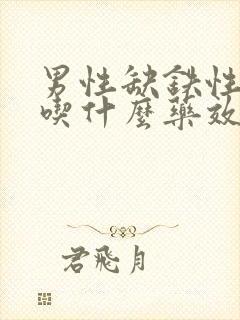 男性缺鉄性
喫什麼藥效
君飛月